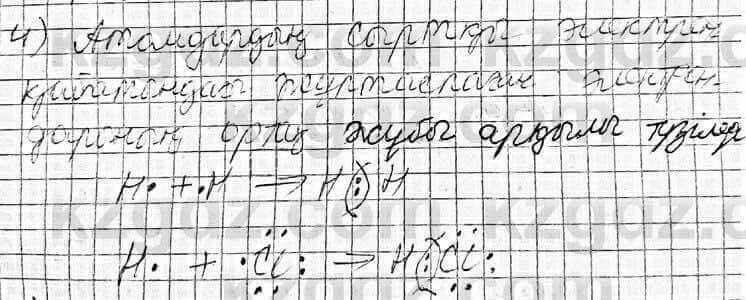 4) Атомдардың сыртқы электрон
қабатындағы жұптаспаған электрон-
дарының ортақ жұбы арқылы түзіледі
H· + ·H → H : H
H· + ·Cl: → H :Cl:
kzgdz.com